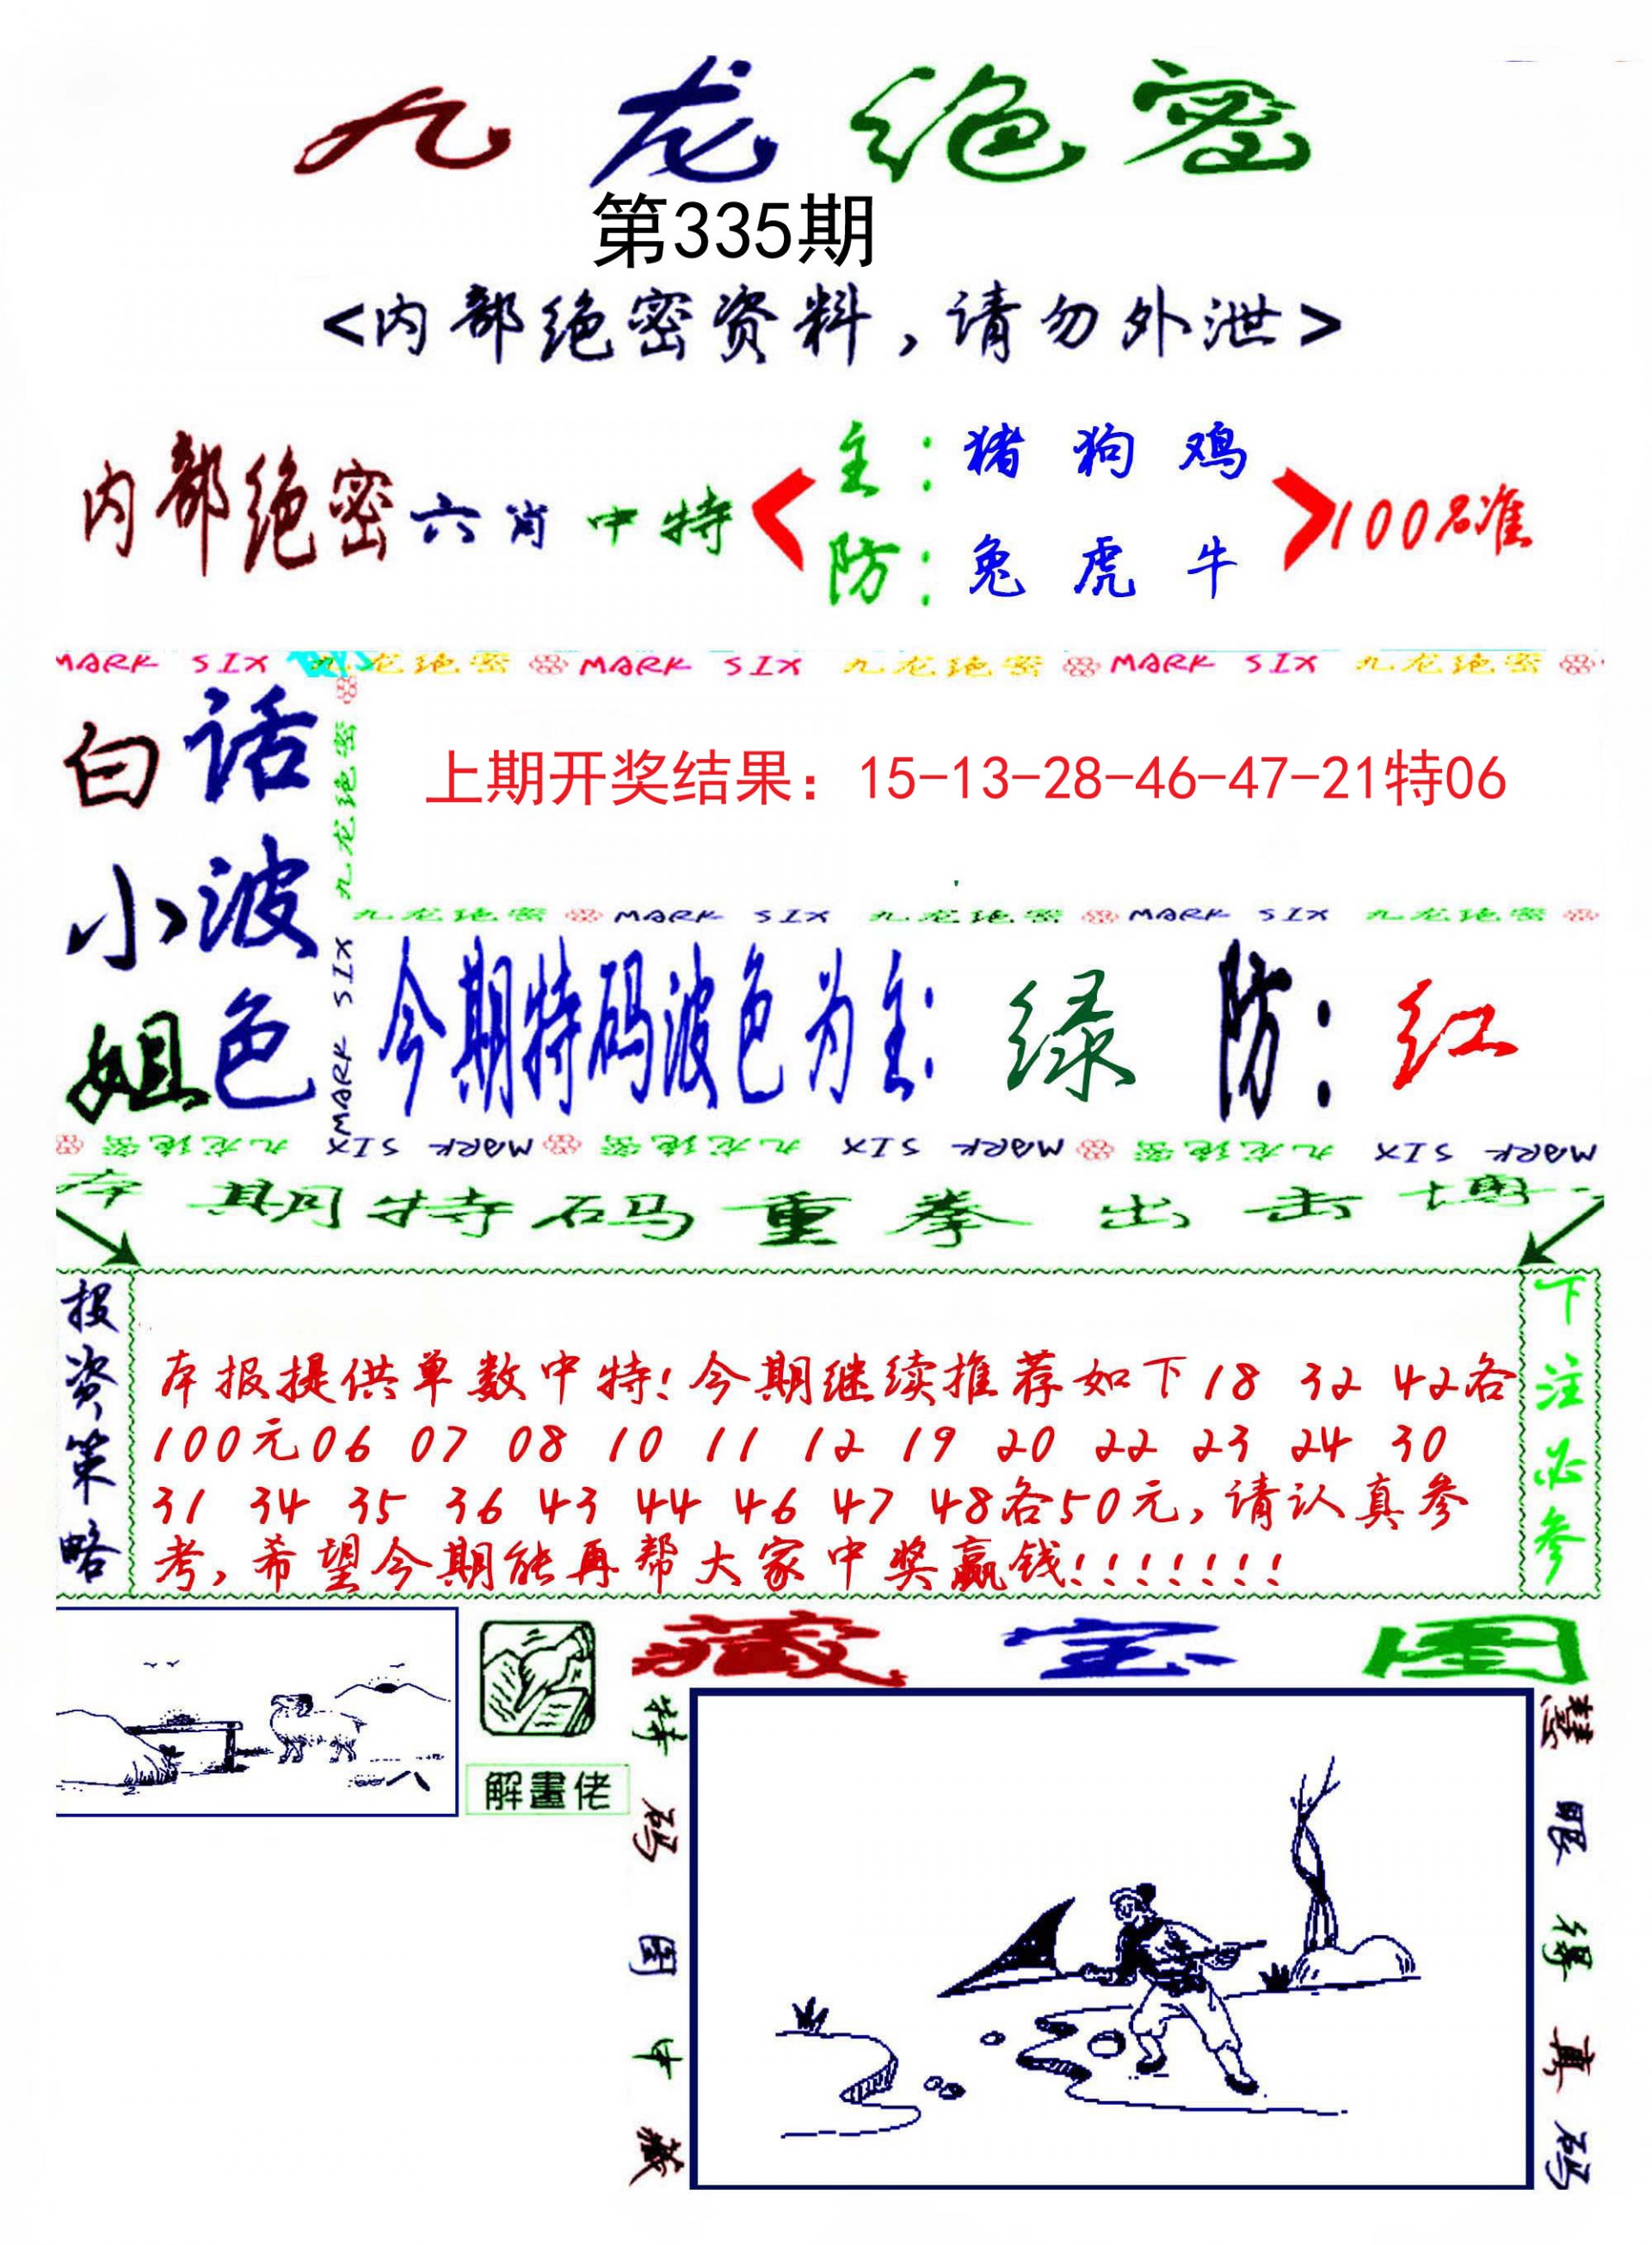 九龙绝密
第335期
<内部绝密资料,请勿外泄>
内部绝密六肖中特
主:猪 狗 鸡
防:兔 虎 牛
100%准
MARK SIX 九龙绝密 MARK SIX 九龙绝密 MARK SIX 九龙绝密
白小姐
话波色
九龙绝密
MARK SIX
上期开奖结果：15-13-28-46-47-21特06
九龙绝密 MARK SIX 九龙绝密 MARK SIX 九龙绝密
今期特码波色为主: 绿 防: 红
MARK SIX 九龙绝密 MARK SIX 九龙绝密 MARK SIX 九龙绝密
本期特码重拳出击博
投资策略
本报提供单数中特!今期继续推荐如下18 32 42各
100元06 07 08 10 11 12 19 20 22 23 24 30
31 34 35 36 43 44 46 47 48各50元,请认真参
考,希望今期能再帮大家中奖赢钱!!!!!!!
下注必参
解畫佬
藏宝图
特码图中藏
慧眼得真码